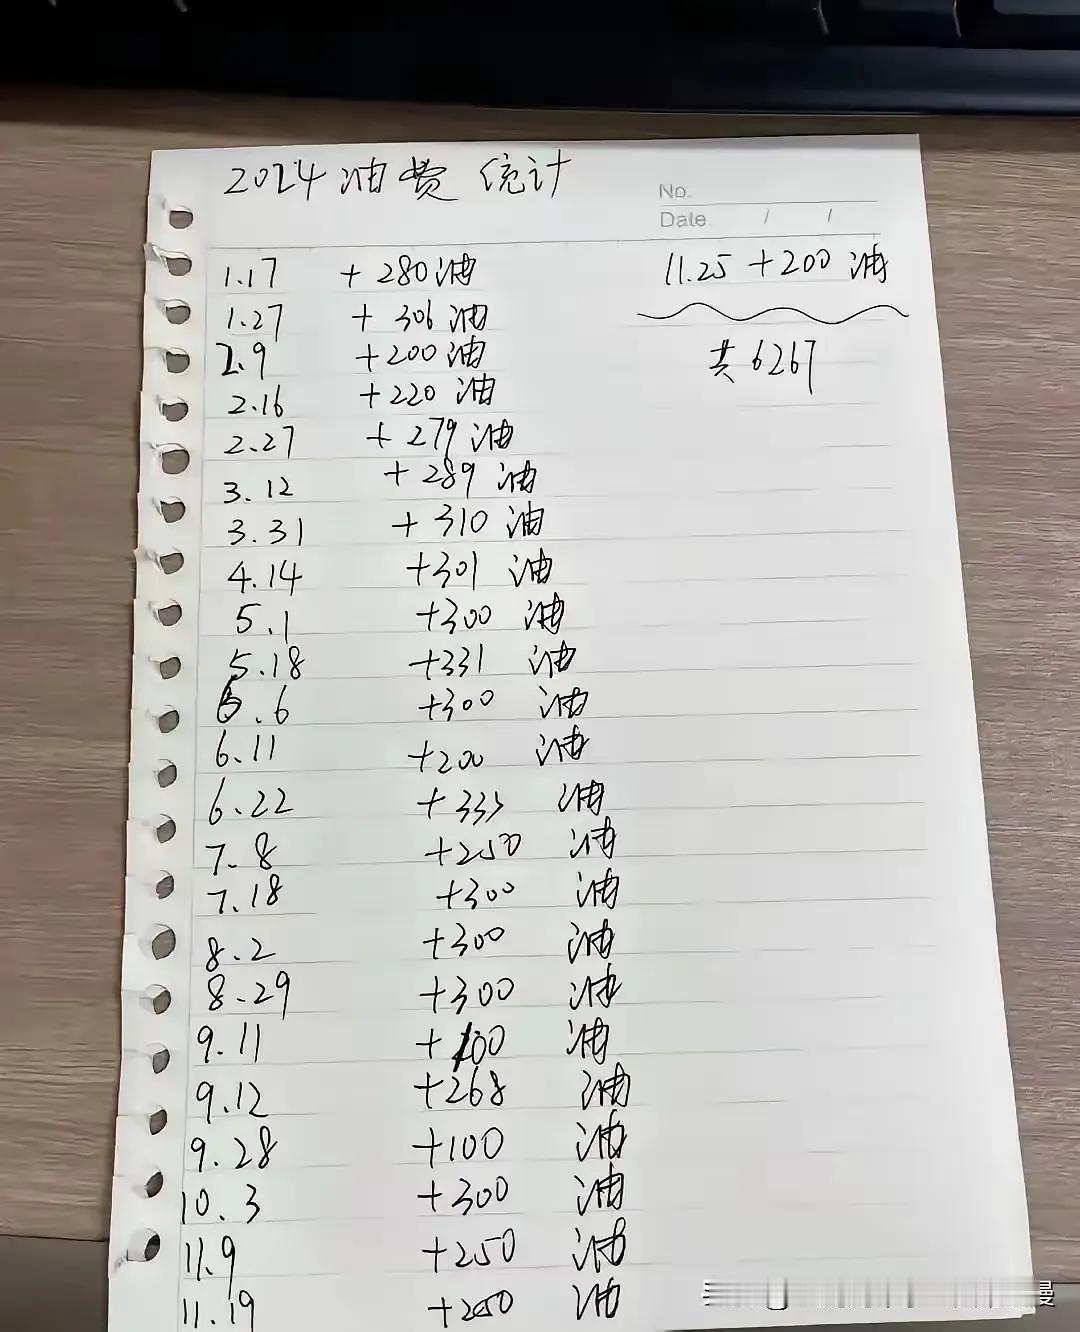 2024油费统计
No.
Date / /
1.17 +280油
1.27 +306油
2.9 +200油
2.16 +220油
2.27 +279油
3.12 +289油
3.31 +310油
4.14 +301油
5.1 +300油
5.18 +331油
6.6 +300油
6.11 +200油
6.22 +333油
7.8 +250油
7.18 +300油
8.2 +300油
8.29 +300油
9.11 +100油
9.12 +268油
9.28 +100油
10.3 +300油
11.9 +250油
11.19 +250油
11.25 +200油
共6267